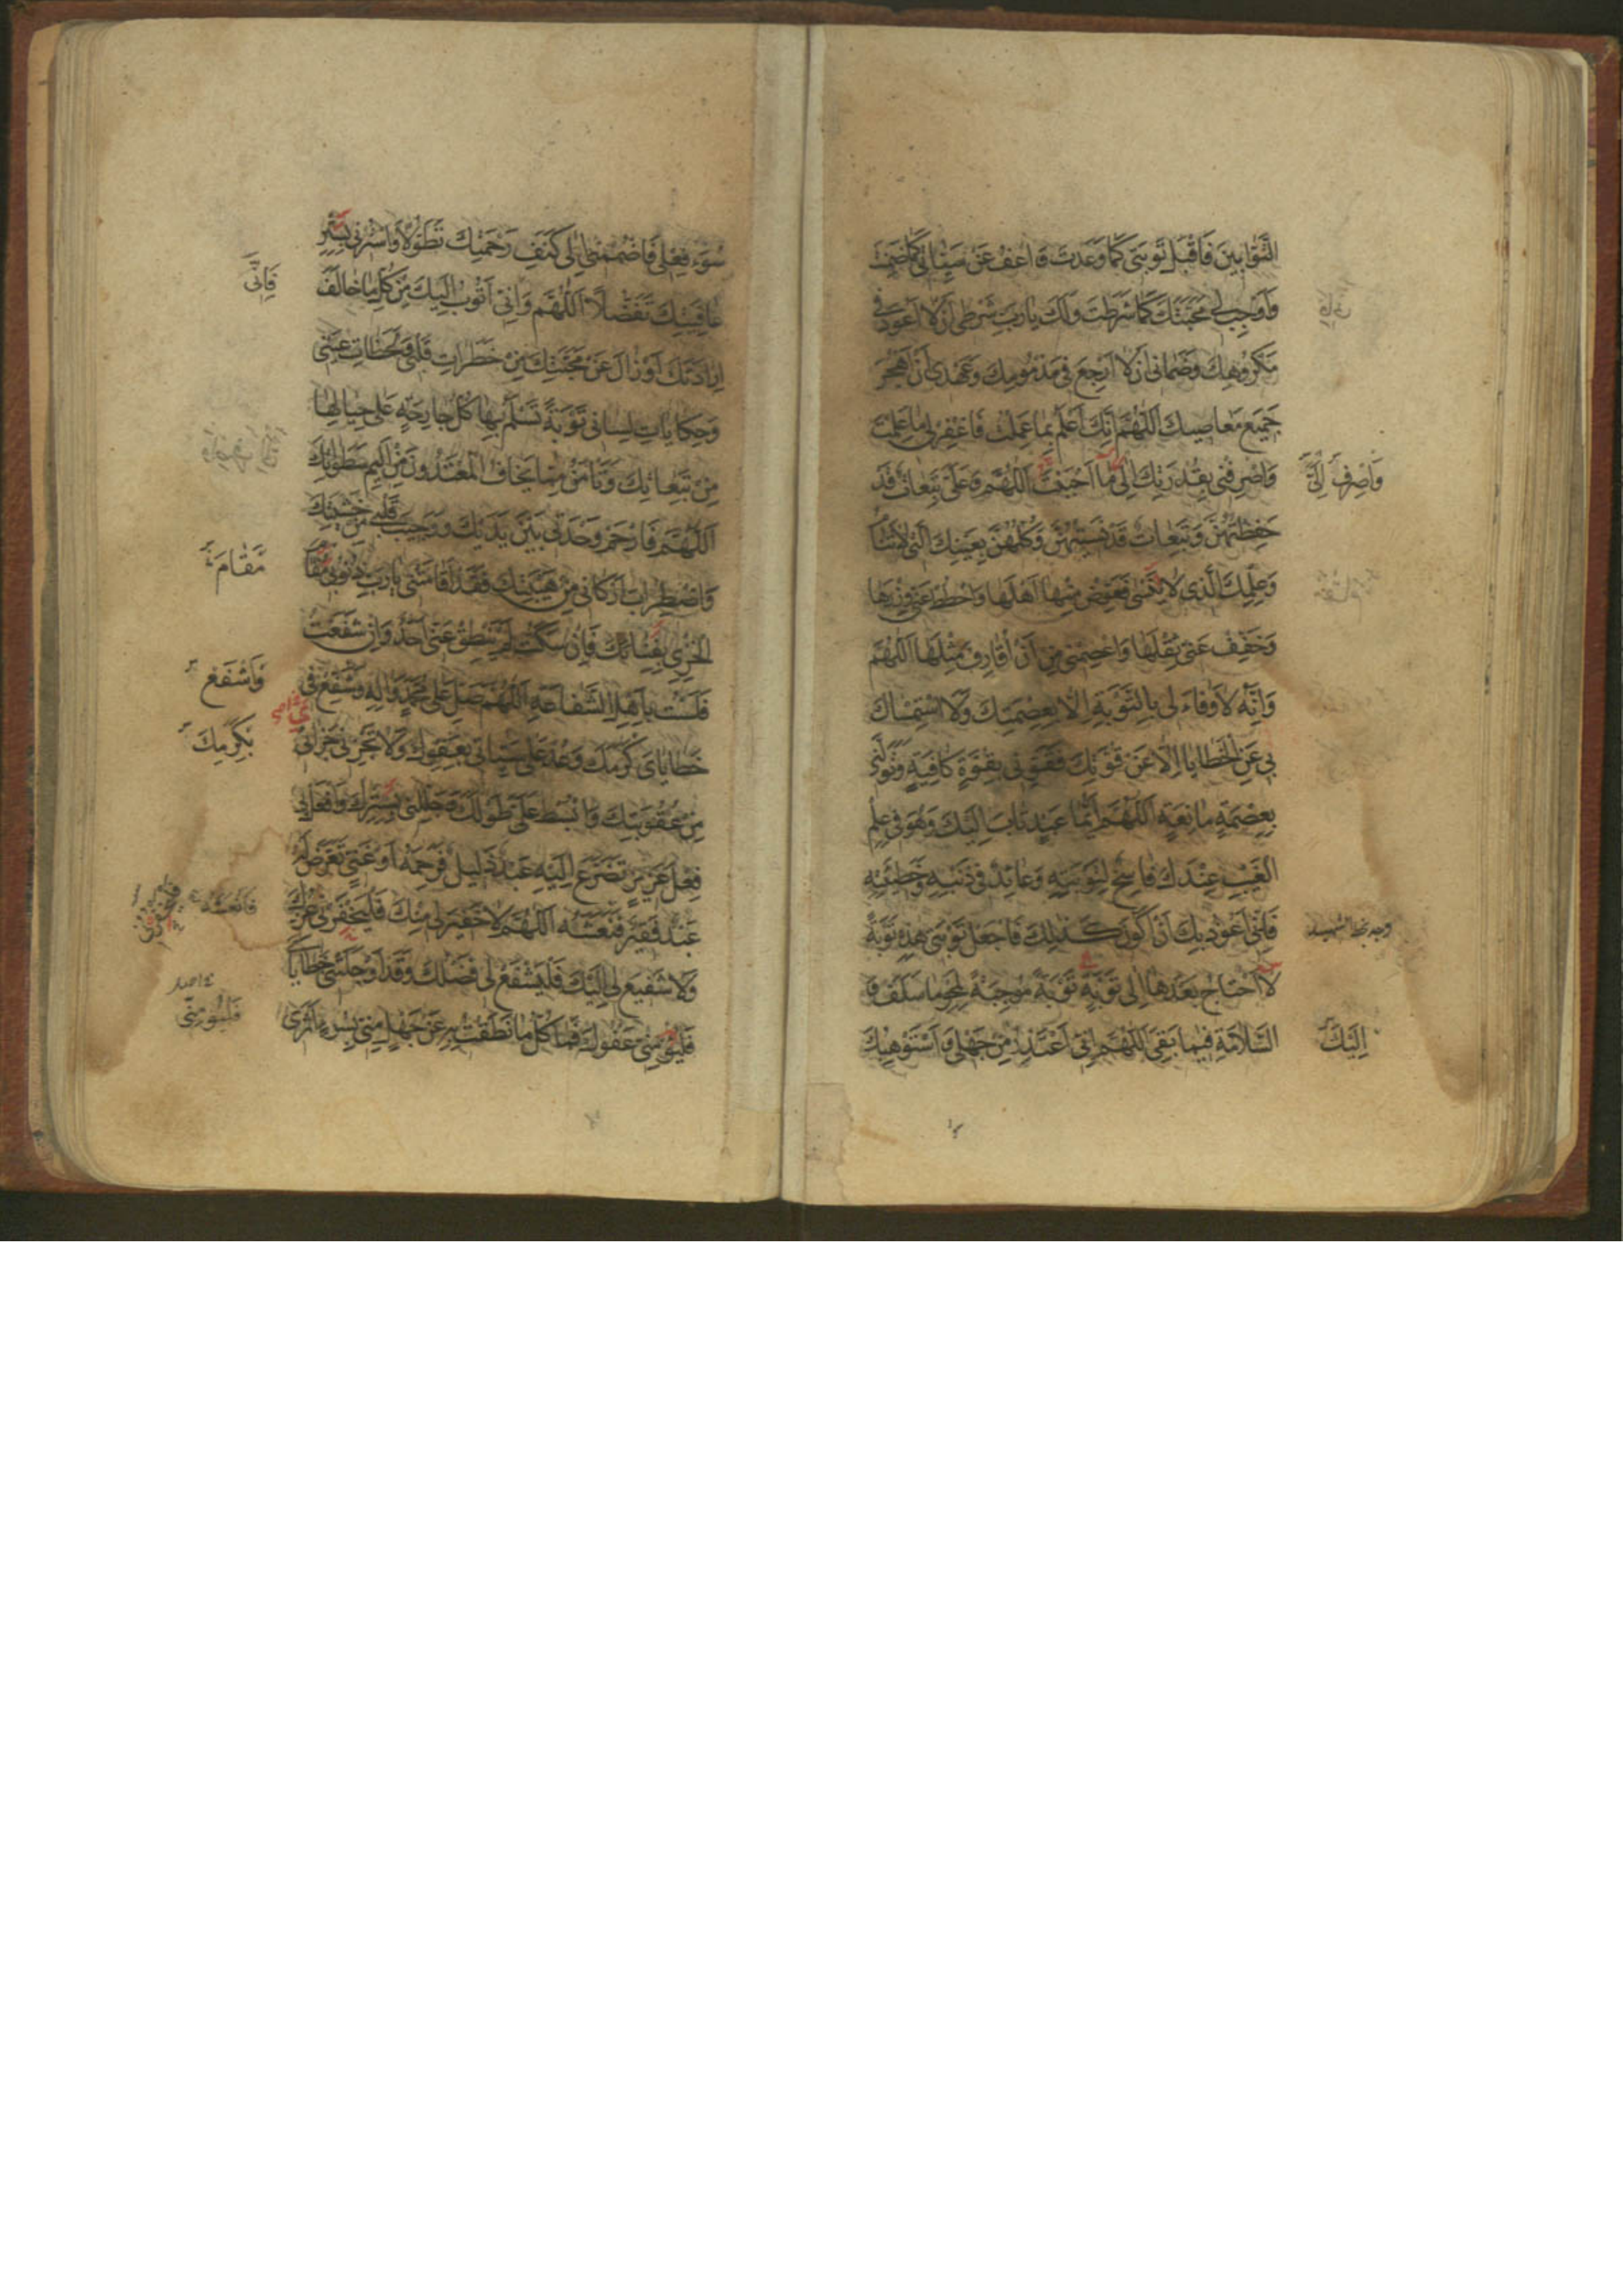 التَّوّابِينَ فَاقْبَلْ تَوْبَتى كَما وَعَدْتَ وَ اعْفُ عَنْ سَيِّئاتى كَما ضَمِنْتَ
وَ اَوْجِبْ لى مَحَبَّتَكَ كَما شَرَطْتَ وَ لَكَ يا رَبِّ شَرْطى اَنْ لا اَعُودَ فى
مَكْرُوهِكَ وَ ضَمانى اَنْ لا اَرْجِعَ فى مَذْمُومِكَ وَ عَهْدى اَنْ اَهْجُرَ
جَمِيعَ مَعاصِيكَ اَللّهُمَّ اِنَّكَ اَعْلَمُ بِما عَمِلْتُ فَاغْفِرْ لى ما عَلِمْتَ
وَ اصْرِفْنى بِقُدْرَتِكَ اِلى ما اَحْبَبْتَ اَللّهُمَّ وَ عَلَىَّ تَبِعاتٌ قَدْ
وَ اصْرِفْ لى
حَفِظْتُهُنَّ وَ تَبِعاتٌ قَدْ نَسِيتُهُنَّ وَ كُلُّهُنَّ بِعَيْنِكَ الَّتى لا تَنامُ
وَ عِلْمِكَ الَّذى لا يَنْسى فَعَوِّضْ مِنْها اَهْلَها وَ احْطُطْ عَنّى وِزْرَها
وَ خَفِّفْ عَنّى ثِقْلَها وَ اعْصِمْنى مِنْ اَنْ اُقارِفَ مِثْلَها اَللّهُمَّ
وَ اِنَّهُ لا وَفاءَ لى بِالتَّوْبَةِ اِلّا بِعِصْمَتِكَ وَ لا اسْتِمْساكَ
بى عَنِ الْخَطايا اِلّا عَنْ قُوَّتِكَ فَقَوِّنى بِقُوَّةٍ كافِيَةٍ وَ تَوَلَّنى
بِعِصْمَةٍ مانِعَةٍ اَللّهُمَّ اَيُّما عَبْدٍ تابَ اِلَيْكَ وَ هُوَ فى عِلْمِ
الْغَيْبِ عِنْدَكَ فاسِخٌ لِتَوْبَتِهِ وَ عائِدٌ فى ذَنْبِهِ وَ خَطِيئَتِهِ
فَاِنّى اَعُوذُ بِكَ اَنْ اَكُونَ كَذلِكَ فَاجْعَلْ تَوْبَتى هذِهِ تَوْبَةً
لا اَحْتاجُ بَعْدَها اِلى تَوْبَةٍ تَوْبَةً مُوجِبَةً لِمَحْوِ ما سَلَفَ وَ
السَّلامَةِ فيما بَقِىَ اَللّهُمَّ اِنّى اَعْتَذِرُ مِنْ جَهْلى وَ اَسْتَوْهِبُكَ
اِلَيْكَ
سُوءَ فِعْلى فَاضْمُمْنى اِلى كَنَفِ رَحْمَتِكَ تَطَوُّلاً وَ اسْتُرْنى بِسِتْرِ
عافِيَتِكَ تَفَضُّلاً اَللّهُمَّ وَ اِنّى اَتُوبُ اِلَيْكَ مِنْ كُلِّ ما خالَفَ
فَاِنّى
اِرادَتَكَ اَوْ زالَ عَنْ مَحَبَّتِكَ مِنْ خَطَراتِ قَلْبى وَ لَحَظاتِ عَيْنى
وَ حِكاياتِ لِسانى تَوْبَةً تَسْلَمُ بِها كُلُّ جارِحَةٍ عَلى حِيالِها
مِنْ تَبِعاتِكَ وَ تَأْمَنُ مِمّا يَخافُ الْمُعْتَدُونَ مِنْ اَلِيمِ سَطَواتِكَ
اَللّهُمَّ فَارْحَمْ وَحْدَتى بَيْنَ يَدَيْكَ وَ وَجِيبَ قَلْبى مِنْ خَشْيَتِكَ
وَ اضْطِرابَ اَرْكانى مِنْ هَيْبَتِكَ فَقَدْ اَقامَتْنى يا رَبِّ ذُنُوبى مَقامَ
مَقامَ
الْخِزْىِ بِفِنائِكَ فَاِنْ سَكَتُّ لَمْ يَنْطِقْ عَنّى اَحَدٌ وَ اِنْ شَفَعْتُ
فَلَسْتُ بِاَهْلِ الشَّفاعَةِ اَللّهُمَّ صَلِّ عَلى مُحَمَّدٍ وَ الِهِ وَ شَفِّعْ فى
وَ اشْفَعْ
خَطاياىَ كَرَمَكَ وَ عُدْ عَلى سَيِّئاتى بِعَفْوِكَ وَ لا تَجْزِنى جَزائى
بِكَرَمِكَ
مِنْ عُقُوبَتِكَ وَ ابْسُطْ عَلَىَّ طَوْلَكَ وَ جَلِّلْنى بِسِتْرِكَ وَ افْعَلْ بى
فِعْلَ عَزِيزٍ تَضَرَّعَ اِلَيْهِ عَبْدٌ ذَلِيلٌ فَرَحِمَهُ اَوْ غَنِىٍّ تَعَرَّضَ لَهُ
عَبْدٌ فَقِيرٌ فَنَعَشَهُ اَللّهُمَّ لا خَفِيرَ لى مِنْكَ فَلْيَخْفُرْنى عِزُّكَ
وَ لا شَفِيعَ لى اِلَيْكَ فَلْيَشْفَعْ لى فَضْلُكَ وَ قَدْ اَوْجَلَتْنى خَطاياىَ
فَلْيُؤْمِنّى عَفْوُكَ فَما كُلُّ ما نَطَقْتُ بِهِ عَنْ جَهْلٍ مِنّى بِسُوءِ اَثَرى